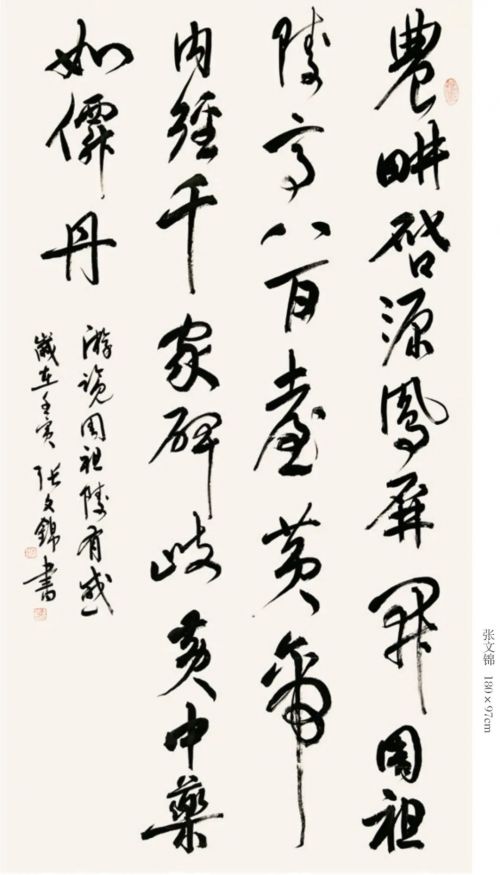 農畊啓源鳳屏開周祖
陵高八百臺黄帝
内經千家碑岐黄中藥
如僊丹
游览周祖陵有感
歲在壬寅 张文錦書
张文锦 180×97cm